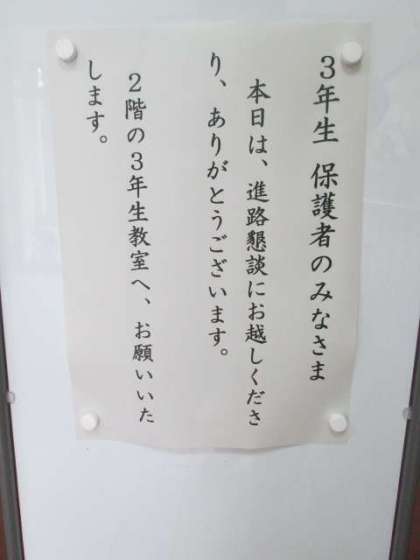 3年生 保護者のみなさま
本日は、進路懇談にお越しくださ
り、ありがとうございます。
2階の3年生教室へ、お願いいた
します。